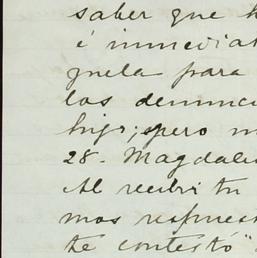 saber que h
é inmediat
quela para
las denunc
hijo; pero m
28- Magdale
Al recibir tu
mos respues
te contestó